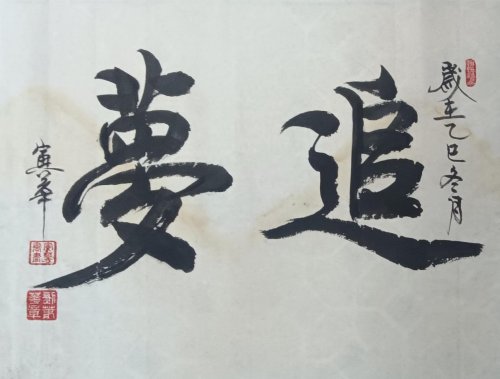 歲在乙巳冬月
追夢
寅華